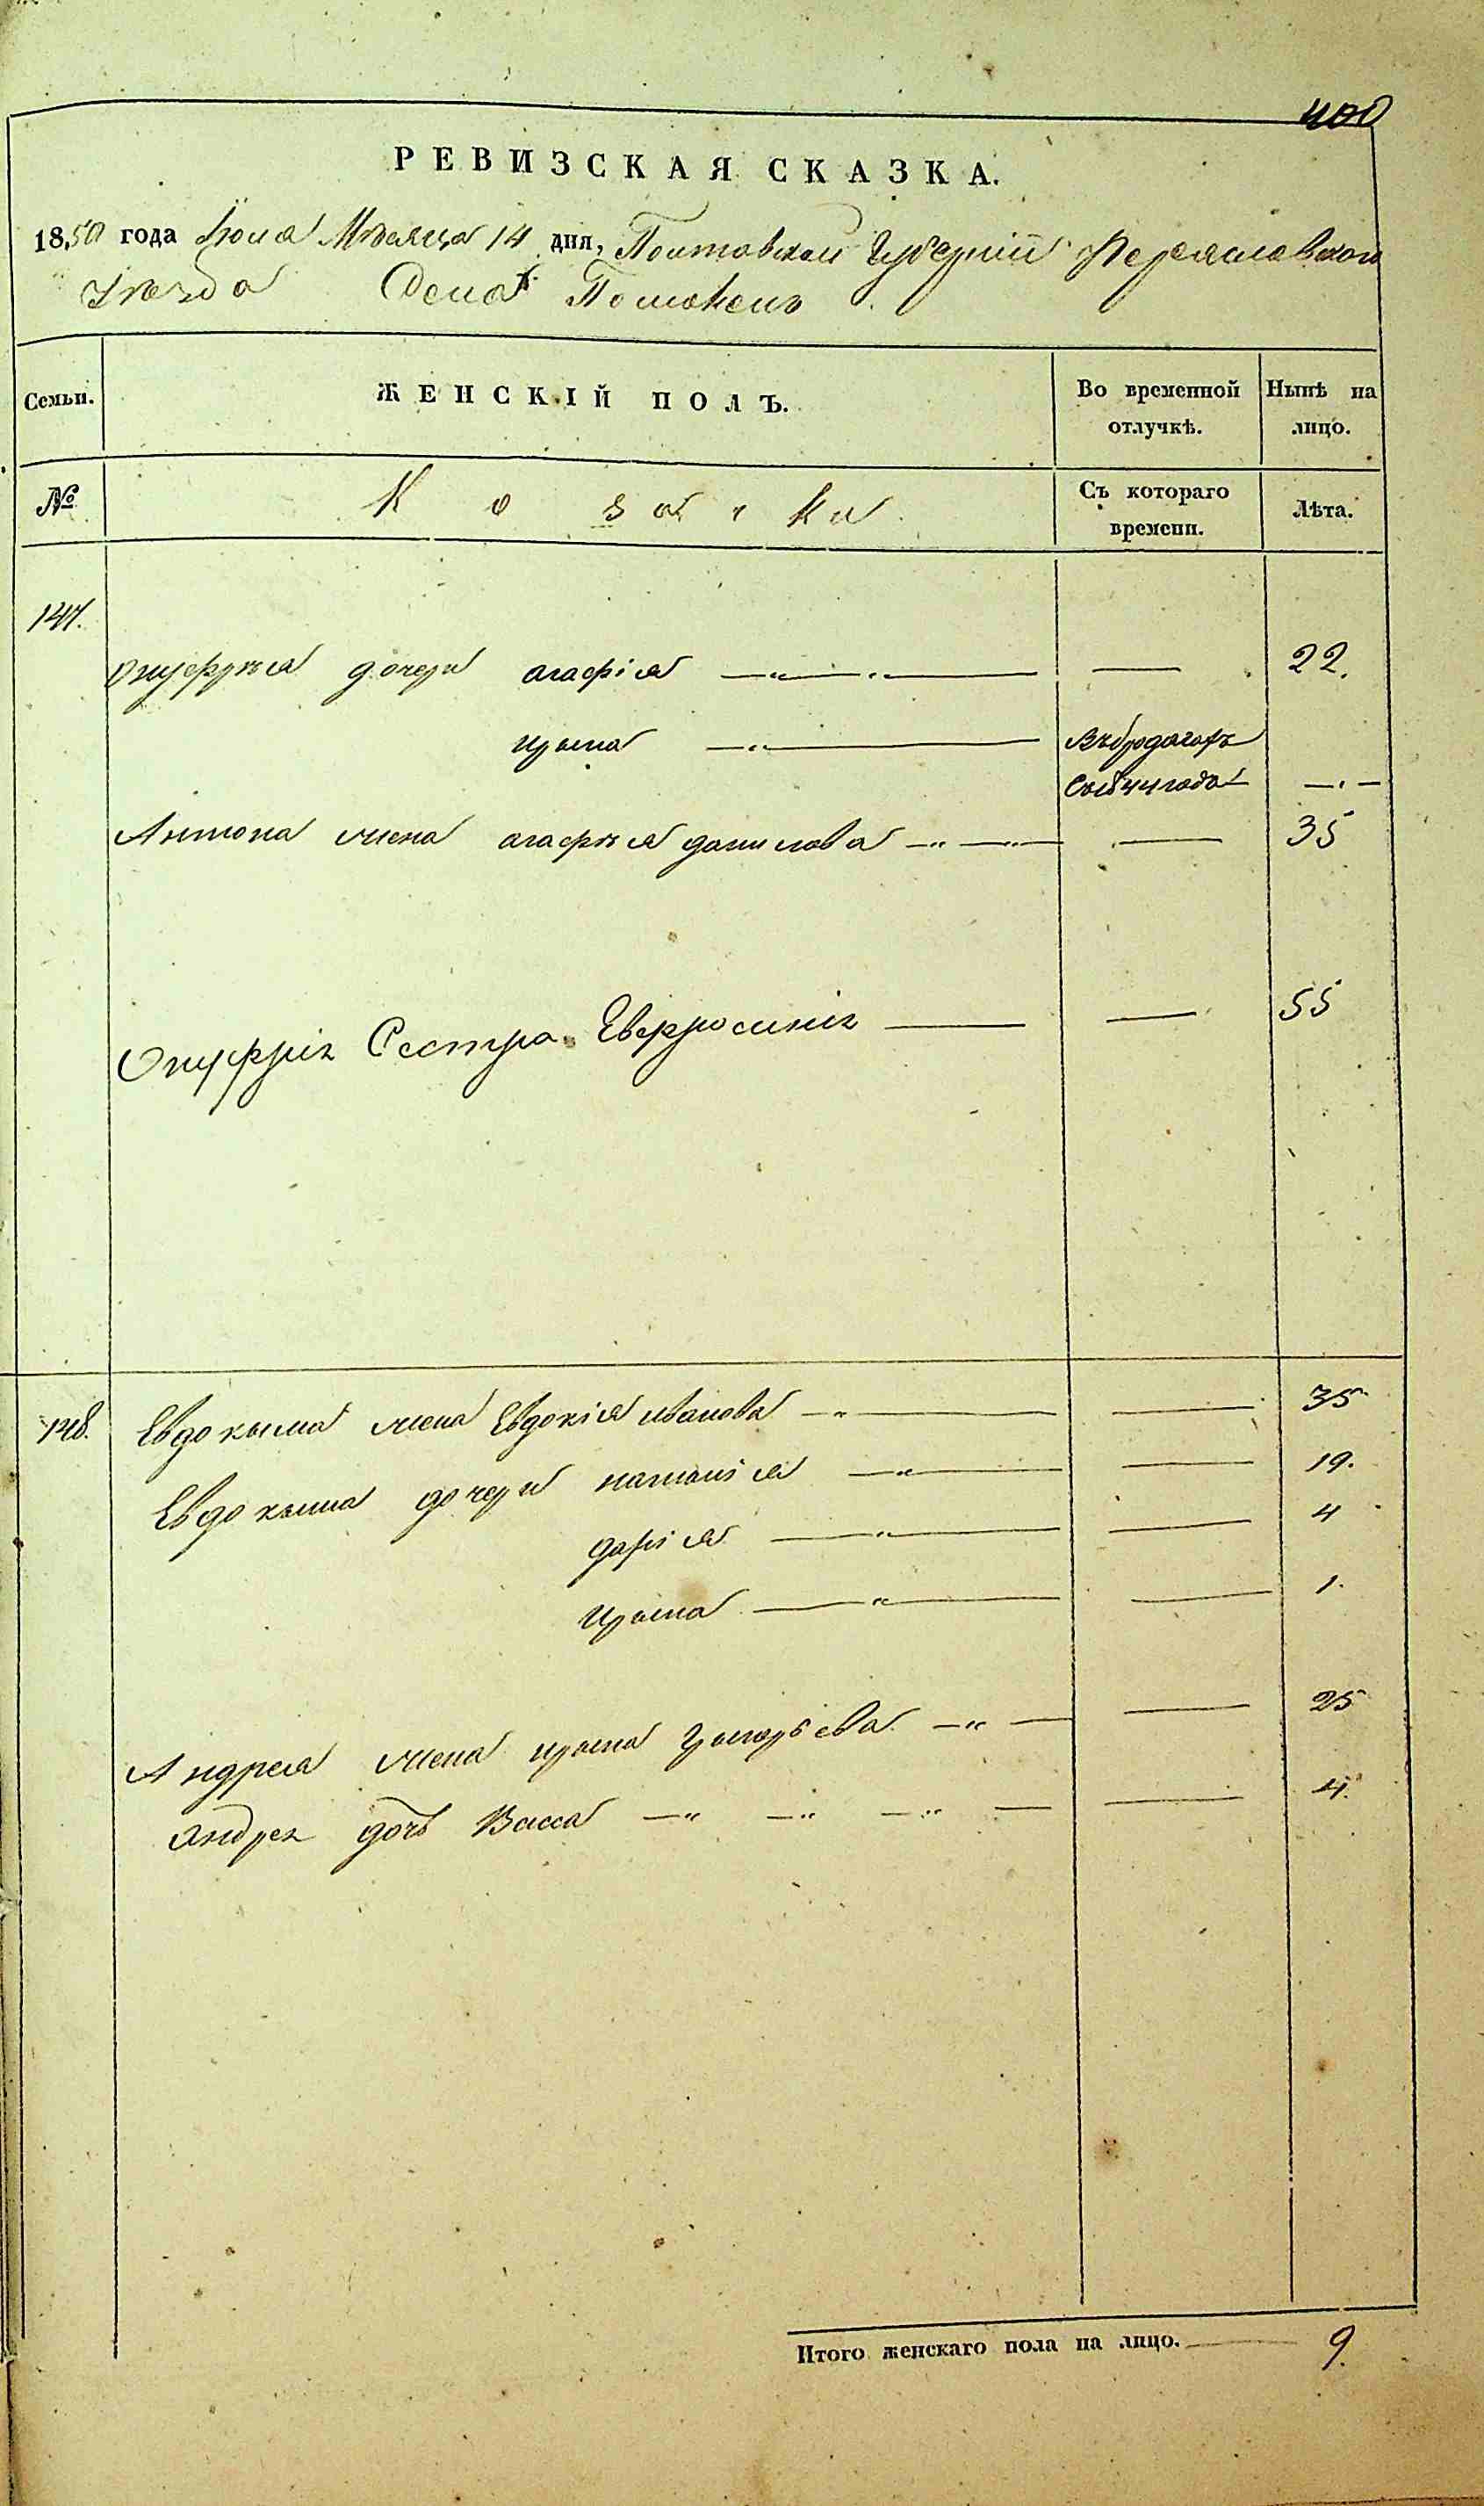 400
РЕВИЗСКАЯ СКАЗКА.
1850 года Июля Мѣсяца 14 дня, Полтавской Губерніи Переяславского
Уѣзда Села Помокель
Семьи. ЖЕНСКІЙ ПОЛЪ. Во временной отлучкѣ. Нынѣ на лицо.
№ Козачка Съ котораго времени. Лѣта.
147.
Онуфрѣя дочери агафія — — 22.
ирина — Въ бродягахъ
Съ 1844 года — " —
Антона жена агафѣя данилова — — 35
Онуфрія Сестра Евфросинія — — 55
148. Евдокыма жена Евдокія иванова — — 35
Евдокыма дочери наталія — — 19.
дарія — — 4
ирина — — 1.
Андрея жена ирина григорьева — — 25
Андрея дочь Васса — — 4.
Итого женскаго пола на лицо. — 9.